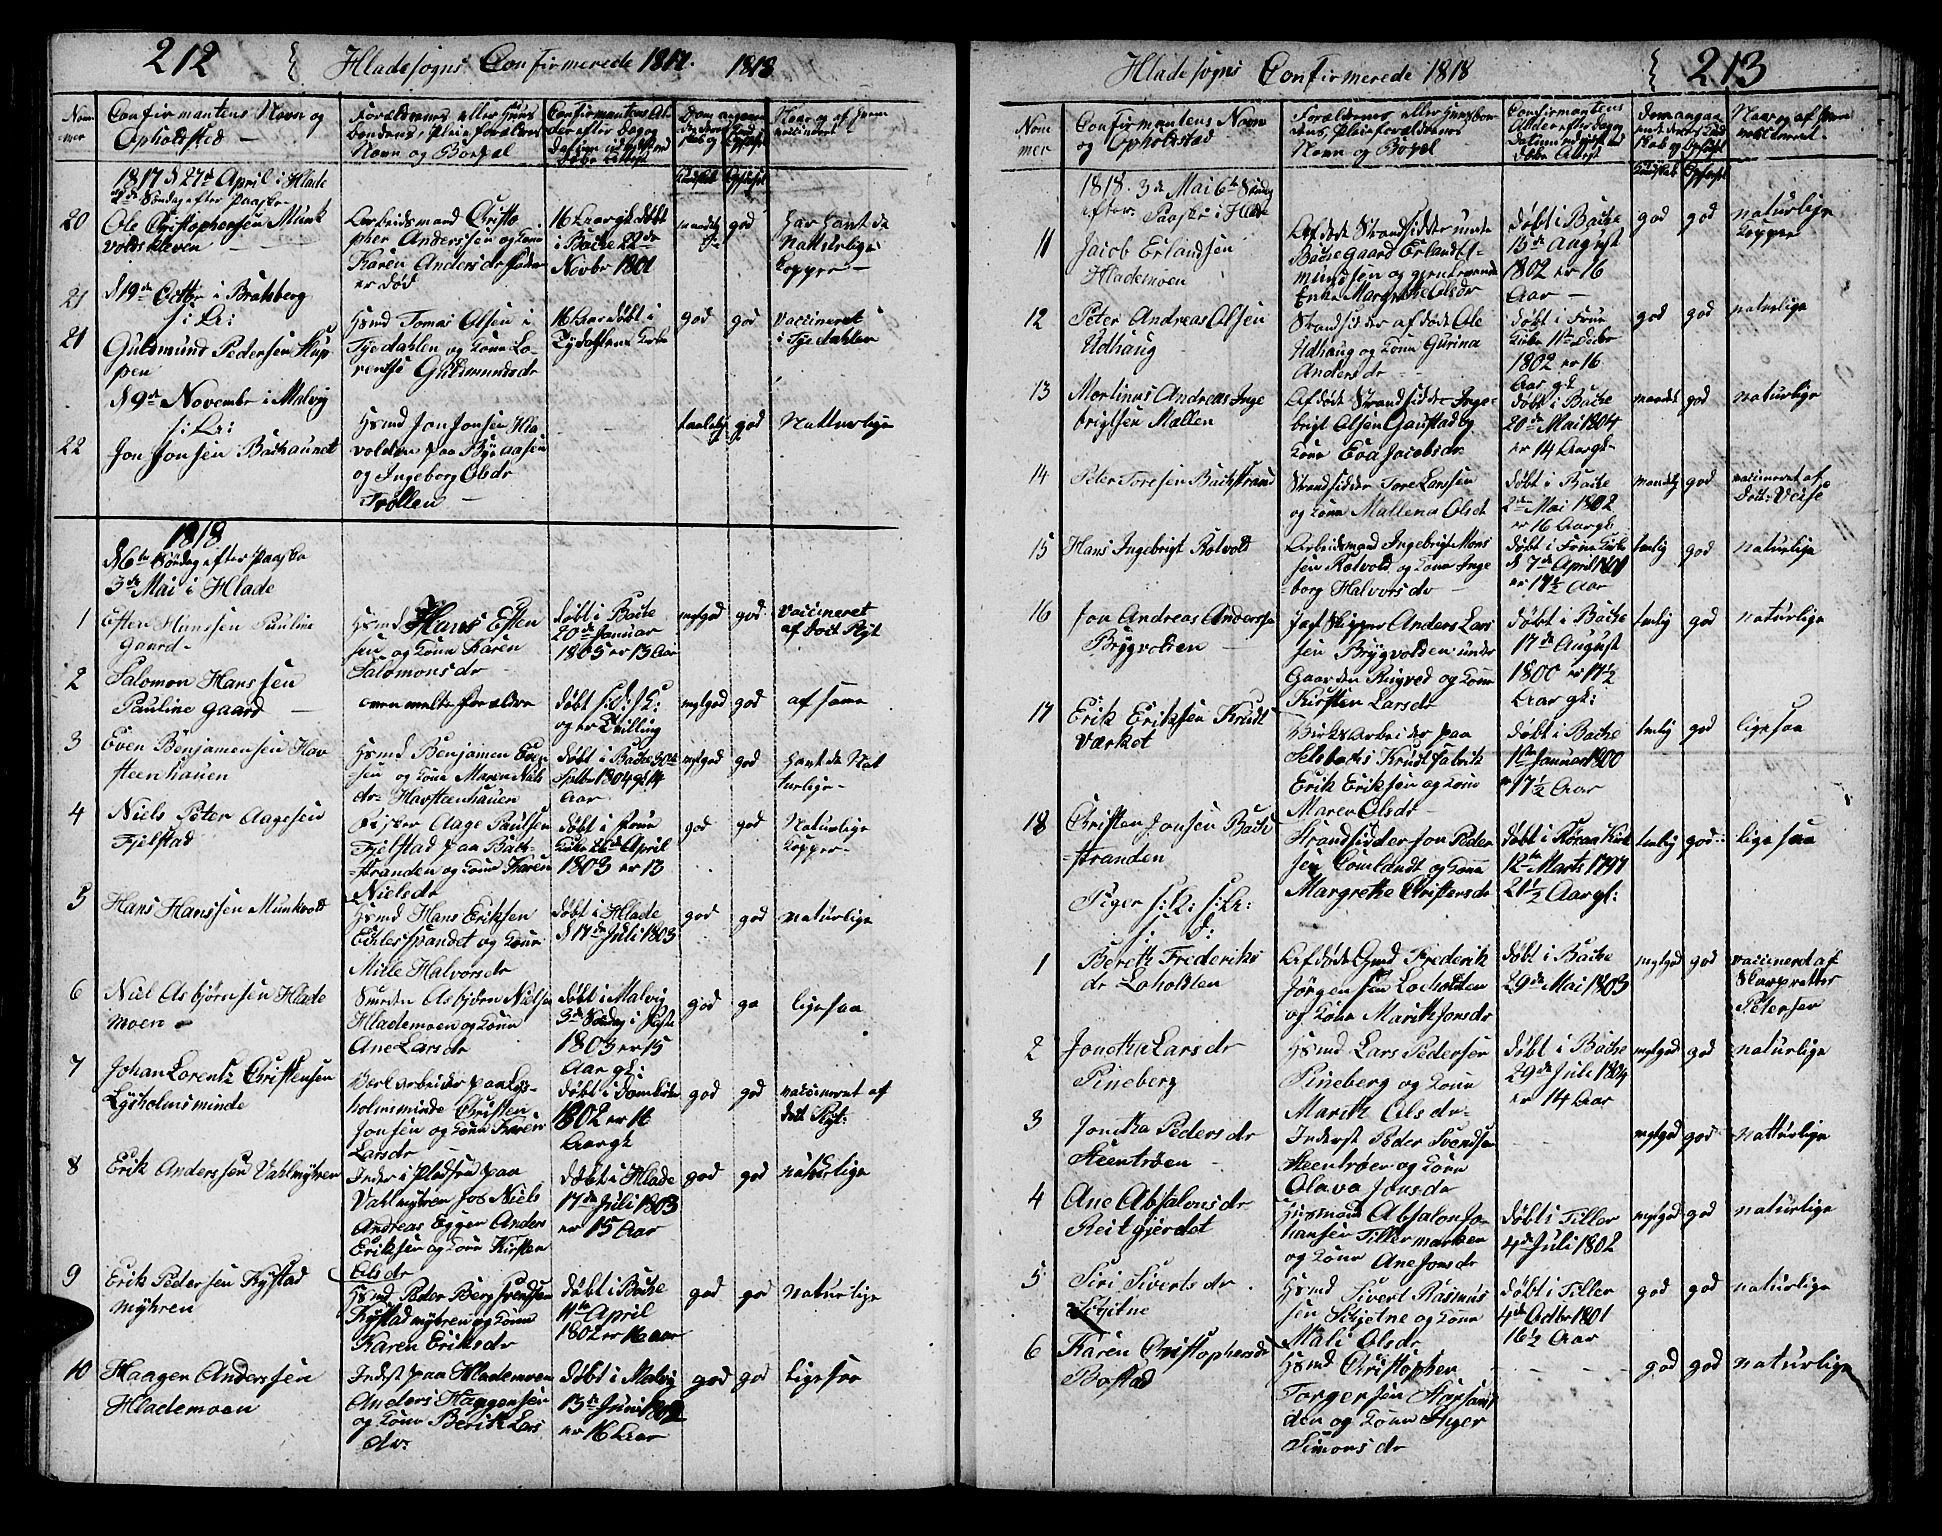 212
Hlade sogns Confirmerede 1817. 1818
Nom
mer
Confirmantens Navn og
Opholdsted
Forældrenes eller Huus
bondens, Pleieforældres
Navn og Bopæl
Confirmantens Al
der efter dag og
Kundskab Opførsel
1817 d 27de April i Hlade
2den Søndag efter Paaske
20
Ole Christophersen Munk
voldskleven
Arbeidsmand Christo
pher Anderssen og Kone
Karen Andersdr Fader
er død
16 Aar gl: døbt
i Bache 22de
Novbr 1801
god
har havt de
Natturlige
Kopper
21
d 19de Octbr i Bratsberg
21
Guldmund Pedersen Stup
pen
Hsmd Tomas Olsen i
Tyedahlen og Kone Lo-
rentse Guldmundsdr
16 Aar døbt i
Tydahlens Kirke
god god
vaccineret
i Tyedahlen
d 9de Novembr i Malvig
22
Jon Jonsen Bachaunet
Hsmd Jon Jonsen Hla
volden paa Byeaasen
og Ingeborg Olsdr
Trollen
taalelig god Natturlige
1818
d 6te Søndag efter Paaske
3de Mai i Hlade
1
Esten Hanssen Pauline
gaard
Hsmd Hans Esten
sen og Kone Karen
Salomonsdr
døbt i Bache
20de Januar
1805 er 13 Aar
mgtgod god
vaccineret
af Doct Rygt
2
Salomon Hanssen
Pauline gaard
ommeldte Forældre
døbt s: D: s: K:
og er Tvilling
mgtgod god
af samme
3
Even Benjamensen Hav
steenhauen
Hsmd Benjamen Even
sen og Kone Maren Niels
dr Havsteenhauen
døbt i Bache 30te
Septbr 1804 gl 14
Aar
mgtgod god
havt de Nat
turlige
4
Niels Peter Aagesen
Fjelstad
Fisker Aage Paulsen
Fjelstad paa Bak-
stranden og Kone Karen
Nielsdr
døbt i Frue
Kirke April
1803 er 15
god god
Naturlige
Kopper
5
Hans Hanssen Munkvold
Hsmd Hans Eriksen
Eclesspandet og Kone
Mille Halvorsdr
døbt i Hlade
d 17de Juli 1803
god god naturlige
6
Niel Asbjørnsen Hlade
moen
Smeden Asbjørn Nielsen
Hlademoen og Kone
Ane Larsdr
døbt i Malvig
3de Søndag i Faste
1803 er 15
Aar gl:
god go ligesaa
7
Johan Lorentz Christensen
Lysholmsminde
arbeider paa Lys-
holmsminde Christen
Jonsen og Kone Karen
Larsdr
døbt i Domkirken
1802 er 16
Aar gl
god god
vaccineret af
doct Rygt:
8
Erik Anderssen Vahlmyhren
Inder i Pladsen paa
Vahlmyhren hos Niels
Andreas Egger Anders
Eriksen og Kone Kirsten
Olsdr
døbt i Hlade
17de Juli 1803
er 15 Aar
god god naturlige
9
Erik Pedersen Kystad
myhren
Hsmd Peder Berg Svendsen
Kystadmyhren og Kone
Karen Eriksdr
døbt i Bache
11te April
1802 er 16 aar
god god naturlige
10
Haagen Anderssen
Hlademoen
Indst paa Hlademoen
Anders Haagensen
og Kone Berith Lars
dr
døbt i Malvig
13de Juni 1802
er 16 Aar
god god ligesaa
Hlade sogns Confirmerede 1818
213
Nom
mer
Confirmantens Navn
og Opholdstad
Forældrenes eller Huusbon-
dens, Pleieforældrenes
Navn og Bopæl
Confirmantens
Alder efter dag og
Kundskab Opførsel
1818. 3de Mai 6te Søndag
efter Paaske i Hlade
11
Jacob Erlandsen
Hlademoen
Afdøde Strandsidder under
Bache Gaard Erland A-
mundsen og gjenlevende
Enke Margrethe Olsdr
døbt i Bache
15de August
1802 er 16
Aar
god god
naturlige
Kopper
12
Peter Andreas Olsen
Udhaug
Strandsidder afdøde Ole
Udhaug og Kone Gurina
Andersdr
døbt i Frue
Kirke 11te Decbr
1802 er 16
Aar gl
god god naturlige
13
Mortinus Andreas Inge
brigtsen Mællen
Afdøde Strandsidder Inge-
brigt Olsen Gaustad og
Kone Eva Jacobsdr
døbt i Bache
20de Mai 1804
er 14 Aar gl
god naturlige
14
Peter Toresen Bachstrand
Strandsidder Tore Larssen
og Kone Mallena Olsdt
døbt i Bache
2de Mai 1802
er 16 Aar gl
god
vaccineret af
Doct: Weise
15
Hans Ingebrigt Rotvold
Arbeidsmand Ingebrigt Mons
sen Rotvold og Kone Inge
borg Halvorsdr
døbt i Frue Kirke
d 7de April 1801
er 17½ Aar
temlig god naturlige
16
Jon Andreas Andersen
Brygvolden
Jagt Skipper Anders Lars
sen Brygvolden under
Gaarden Ringved og Kone
Kirsten Larsdr
døbt i Bache
17de August
1800 er 17½
Aar gl:
temlig god naturlige
17
Erik Eriksen Krudt
Værket
Virksarbeider paa
Selsbachs Krudtfabrik
Erik Eriksen og Kone
Maren Olsdr
døbt i Bache
1ste Januar 1800
17½ Aar
temlig god ligesaa
18
Christen Jonsen Bach
stranden
Strandsidder Jon Peder
sen Lomlandt og Kone
Margrethe Christensdr
døbt i Røraas Kirke
12te Marts 1797
21½ Aar gl:
temlig god ligesaa
Piger s: K: s: Kr:
s: d:
1
Bereth Frederiks
dr Loholdten
Afdøde Hsmd Frederik
Jørgensen Loeholdten
og Kone Marith Jonsdr
døbt i Bache
29de Mai 1803
mgtgod god
vaccineret af
Skarpretter
Petersen
2
Jonetha Larsdr
Pineberg
Hsmd Lars Pedersen
Pineberg og Kone
Marith Olsdr
døbt i Bache
29de Juli 1804
er 14 Aar
mgtgod god naturlige
3
Jonetha Pedersdr
Steentrøen
Inderst Peder Svendsen
Steentrøen og Kone
Olava Jonsdr
mgtgod god natturlige
4
Ane Absalonsdr
Reitgjerdet
Husmand Absalon Jo-
hansen Tillermarken
og Kone Ane Jonsdr
døbt i Tiller
4de Juli 1802
mgtgod god naturlige
5
Siri Siverts dr
Stjetne
Hsmd Sivert Rasmus
sen Stjetne og Kone
Mali Olsdr
døbt i Tiller
4de Octbr 1801
16½ Aar
god god naturlige
6
Karen Christophersdr
Bostad
Hsmd Christopher
Torgersen Storsand
den og Kone Inger
Simonsdr
god god naturlige